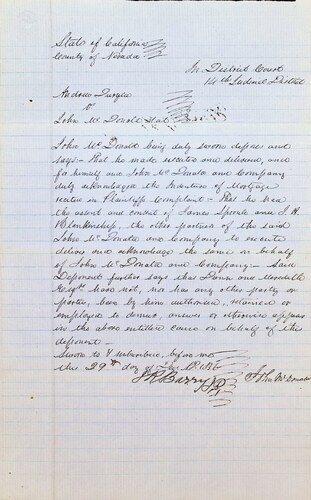 State of California
County of Nevada
In District Court
14th Judicial District
Andrew
vs
John McDonald et al
John McDonald being duly sworn deposes and
says:- That he made executed and delivered, and
for himself and John McDonald and Company
duly acknowledged the Indenture of Mortgage
recited in Plaintiffs Complaint:- That he had
the assent and consent of James and J. H.
Blankinship, the other partners of the said
John McDonald and Company to execute
deliver and acknowledge the same in behalf
of John McDonald and Company:- Said
Deponent further says that Dunn and Meredith
Esqrs have not, nor has any other party or
parties, been by him authorized, retained or
employed to demur, answer or otherwise appear
in the above entitled cause on behalf of this
deponent
Sworn to & subscribed, before me
this 29th day of
J R Barry J.P.
John McDonald